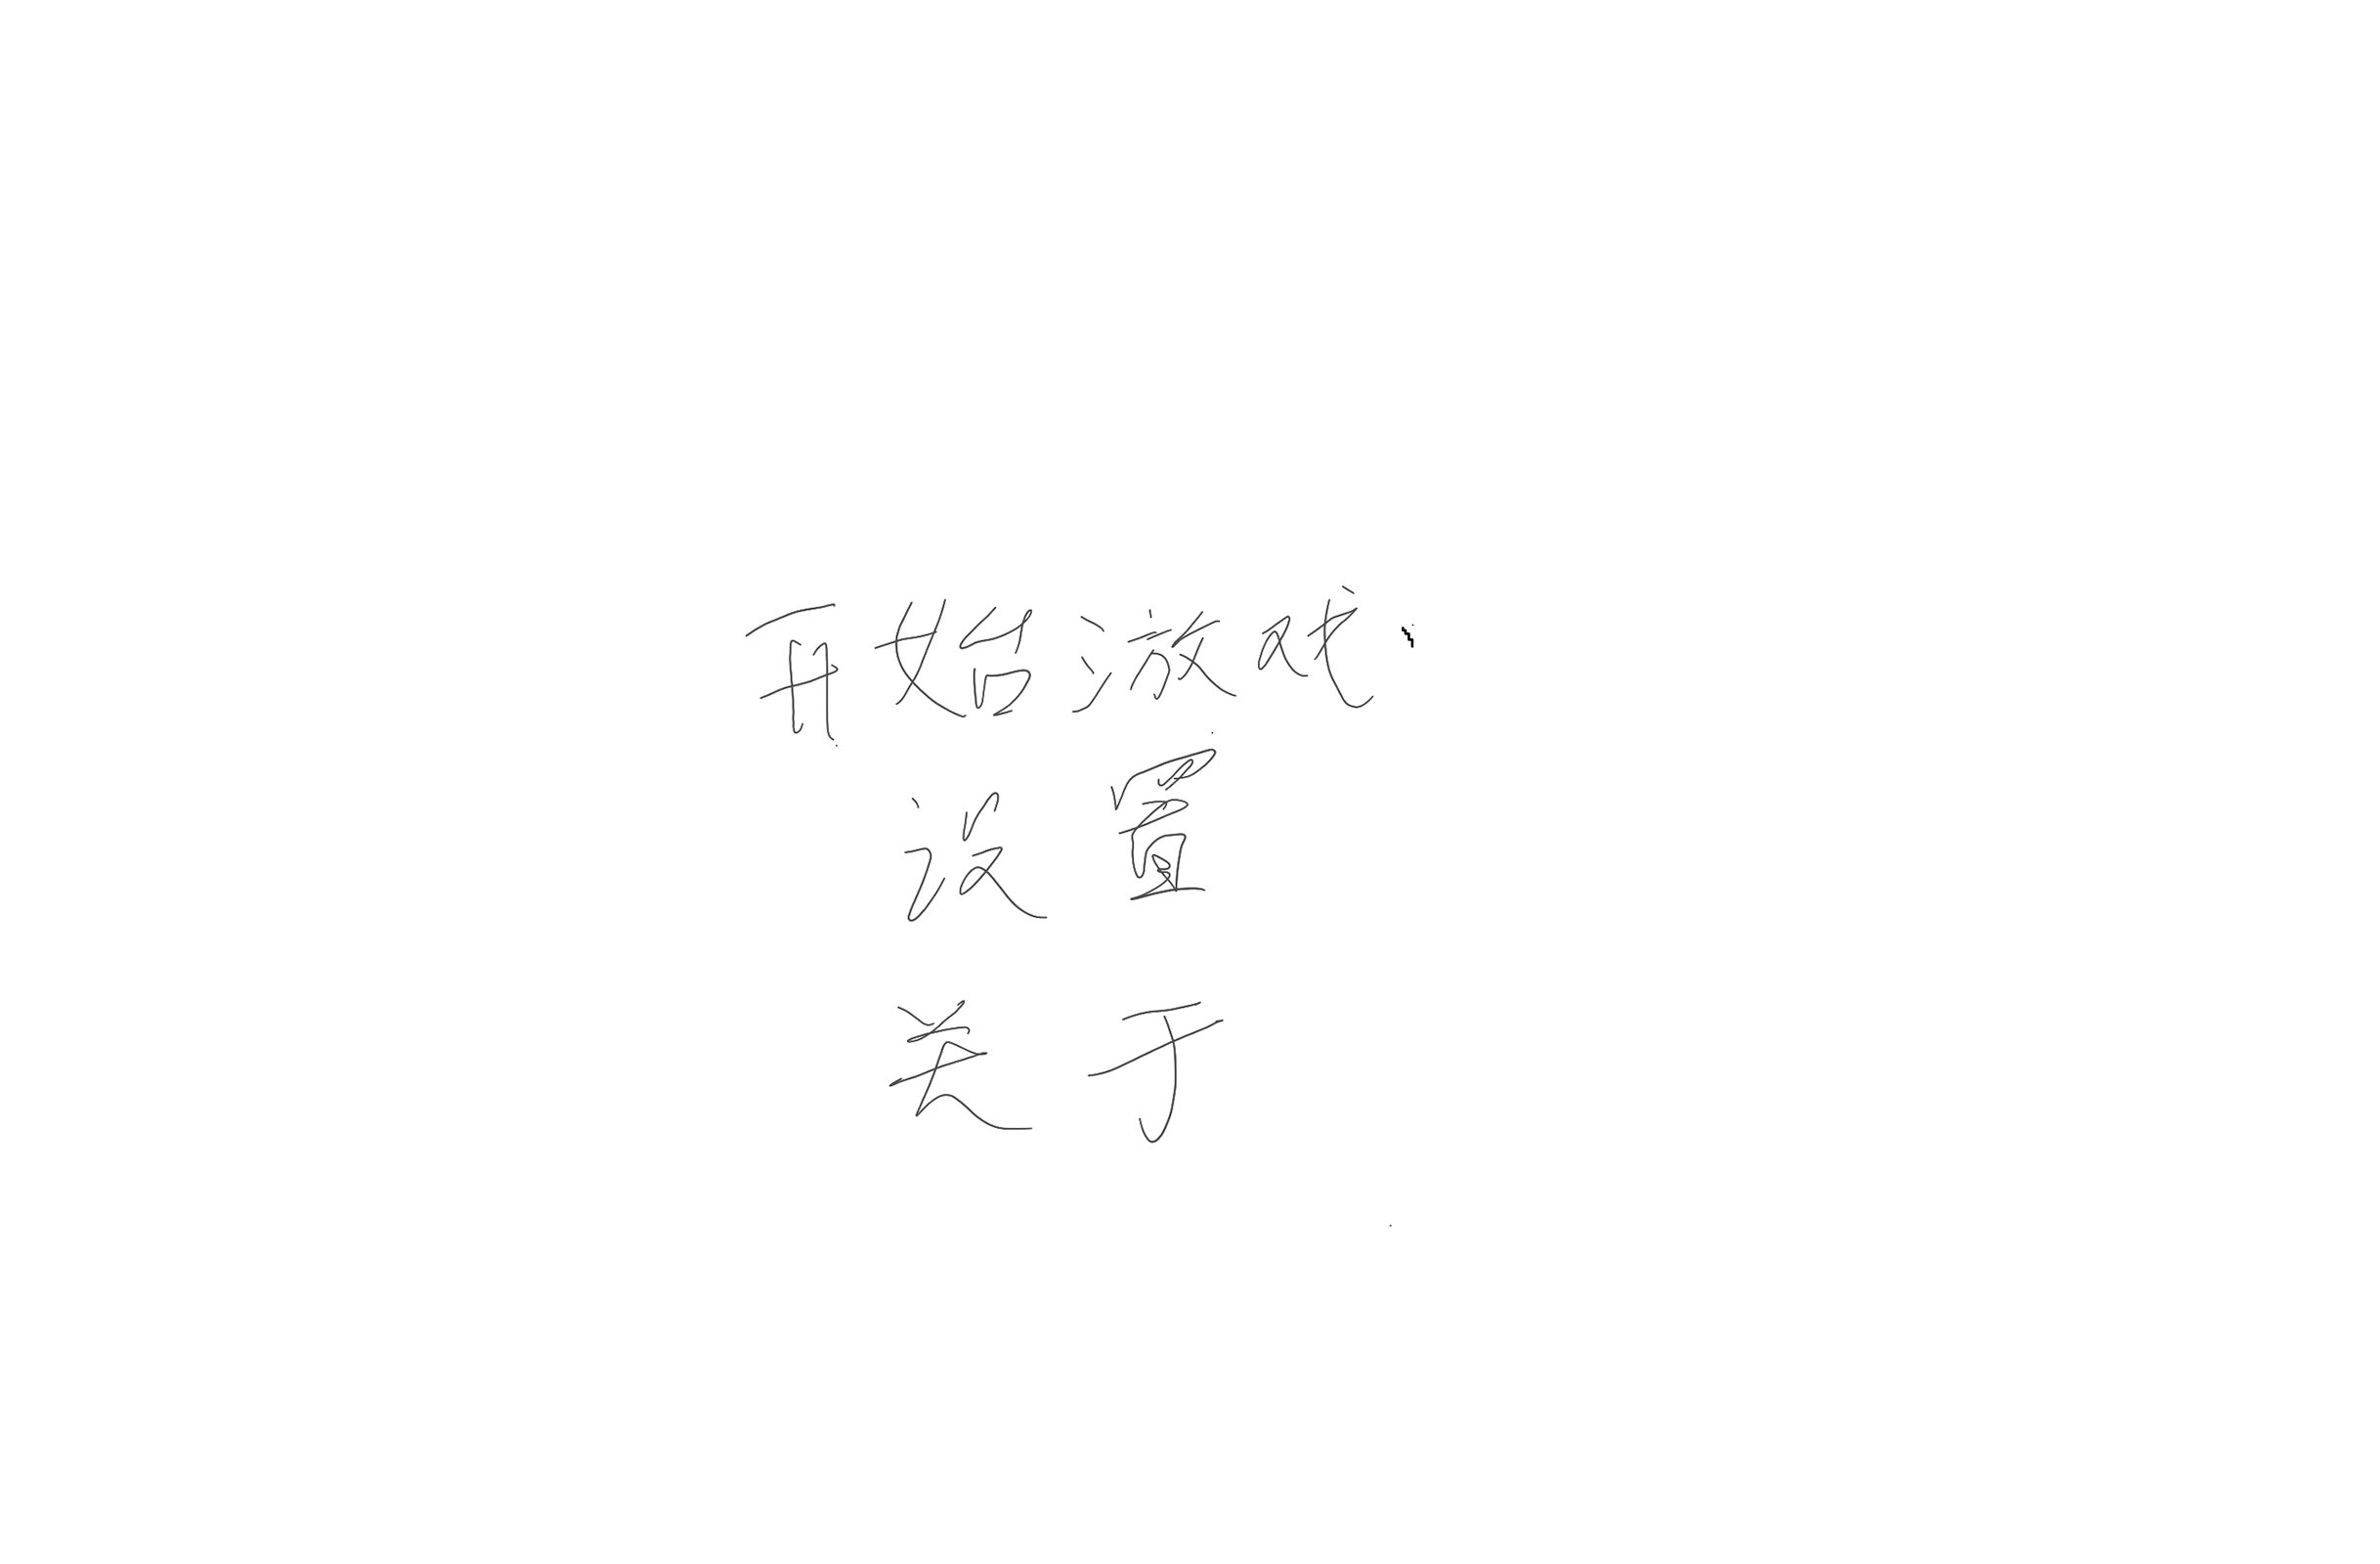 开始游戏
设置
关于